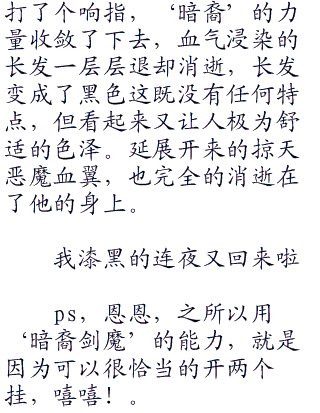 打了个响指，‘暗裔’的力
量收敛了下去，血气浸染的
长发一层层退却消逝，长发
变成了黑色这既没有任何特
点，但看起来又让人极为舒
适的色泽。延展开来的掠天
恶魔血翼，也完全的消逝在
了他的身上。
我漆黑的连夜又回来啦
ps，恩恩，之所以用
‘暗裔剑魔’的能力，就是
因为可以很恰当的开两个
挂，嘻嘻！。